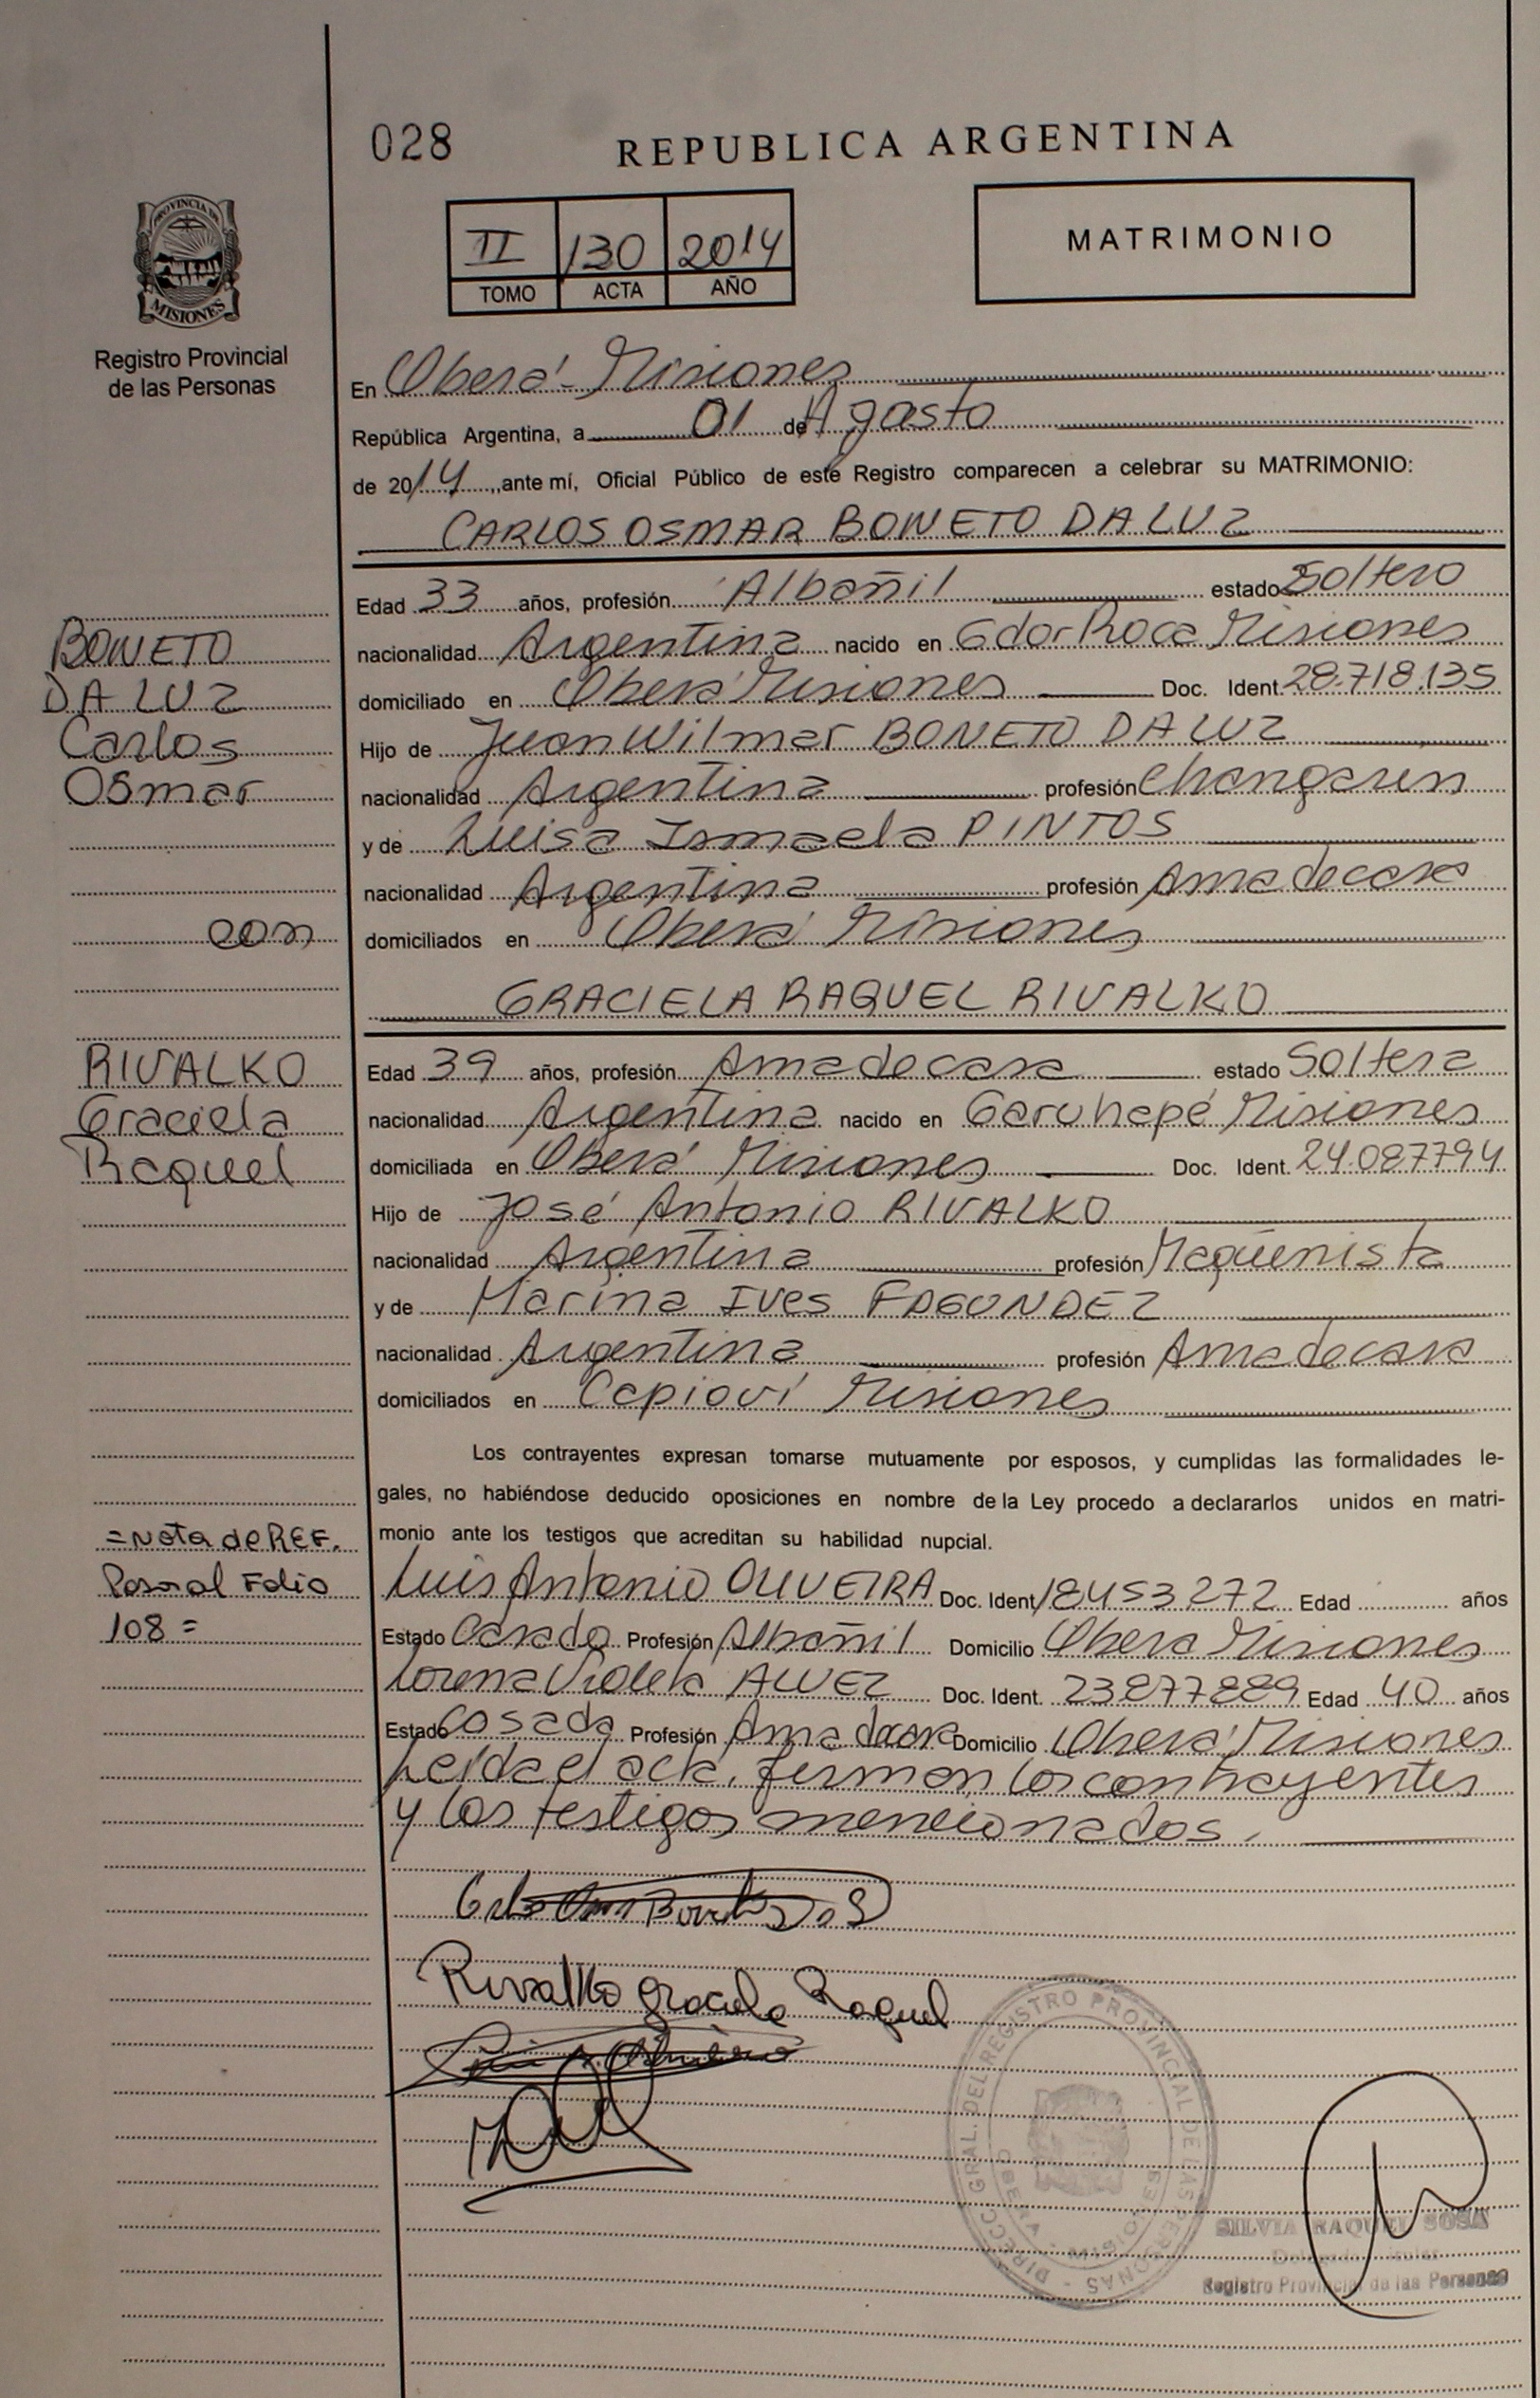 028
REPUBLICA ARGENTINA
PROVINCIA DE
MISIONES
Registro Provincial
de las Personas
II 130 2014
TOMO ACTA AÑO
MATRIMONIO
En Oberá - Misiones
República Argentina, a 01 de Agosto
de 2014, ante mí, Oficial Público de este Registro comparecen a celebrar su MATRIMONIO:
CARLOS OSMAR BONETO DA LUZ
Edad 33 años, profesión Albañil estado Soltero
nacionalidad Argentina nacido en Gdor Roca Misiones
domiciliado en Oberá Misiones Doc. Ident 28.718.135
Hijo de Juan Wilmar BONETO DA LUZ
nacionalidad Argentina profesión Changarin
y de Luisa Ismaela PINTOS
nacionalidad Argentina profesión Ama de casa
domiciliados en Oberá Misiones
GRACIELA RAQUEL RIVALKO
Edad 39 años, profesión Ama de casa estado Soltera
nacionalidad Argentina nacido en Garuhapé Misiones
domiciliada en Oberá Misiones Doc. Ident. 24.087794
Hijo de José Antonio RIVALKO
nacionalidad Argentina profesión Maquinista
y de Marina Ives FAGUNDEZ
nacionalidad Argentina profesión Ama de casa
domiciliados en Capioví Misiones
Los contrayentes expresan tomarse mutuamente por esposos, y cumplidas las formalidades le-
gales, no habiéndose deducido oposiciones en nombre de la Ley procedo a declararlos unidos en matri-
monio ante los testigos que acreditan su habilidad nupcial.
Luis Antonio OLIVEIRA Doc. Ident 18453272 Edad años
Estado Casado Profesión Albañil Domicilio Obera Misiones
Lorena Violeta ALVEZ Doc. Ident. 23877889 Edad 40 años
Estado Casada Profesión Ama de casa Domicilio Oberá Misiones
Leída el acta, firman los contrayentes
y los testigos mencionados.
BONETO
DA LUZ
Carlos
Osmar
con
RIVALKO
Graciela
Raquel
=Nota de REF.
Pasa al Folio
108=
Rivalko Graciela Raquel
DIRECC. GRAL. DEL REGISTRO PROVINCIAL DE LAS PERSONAS
SILVIA RAQUEL SOSA
Registro Provincial de las Personas